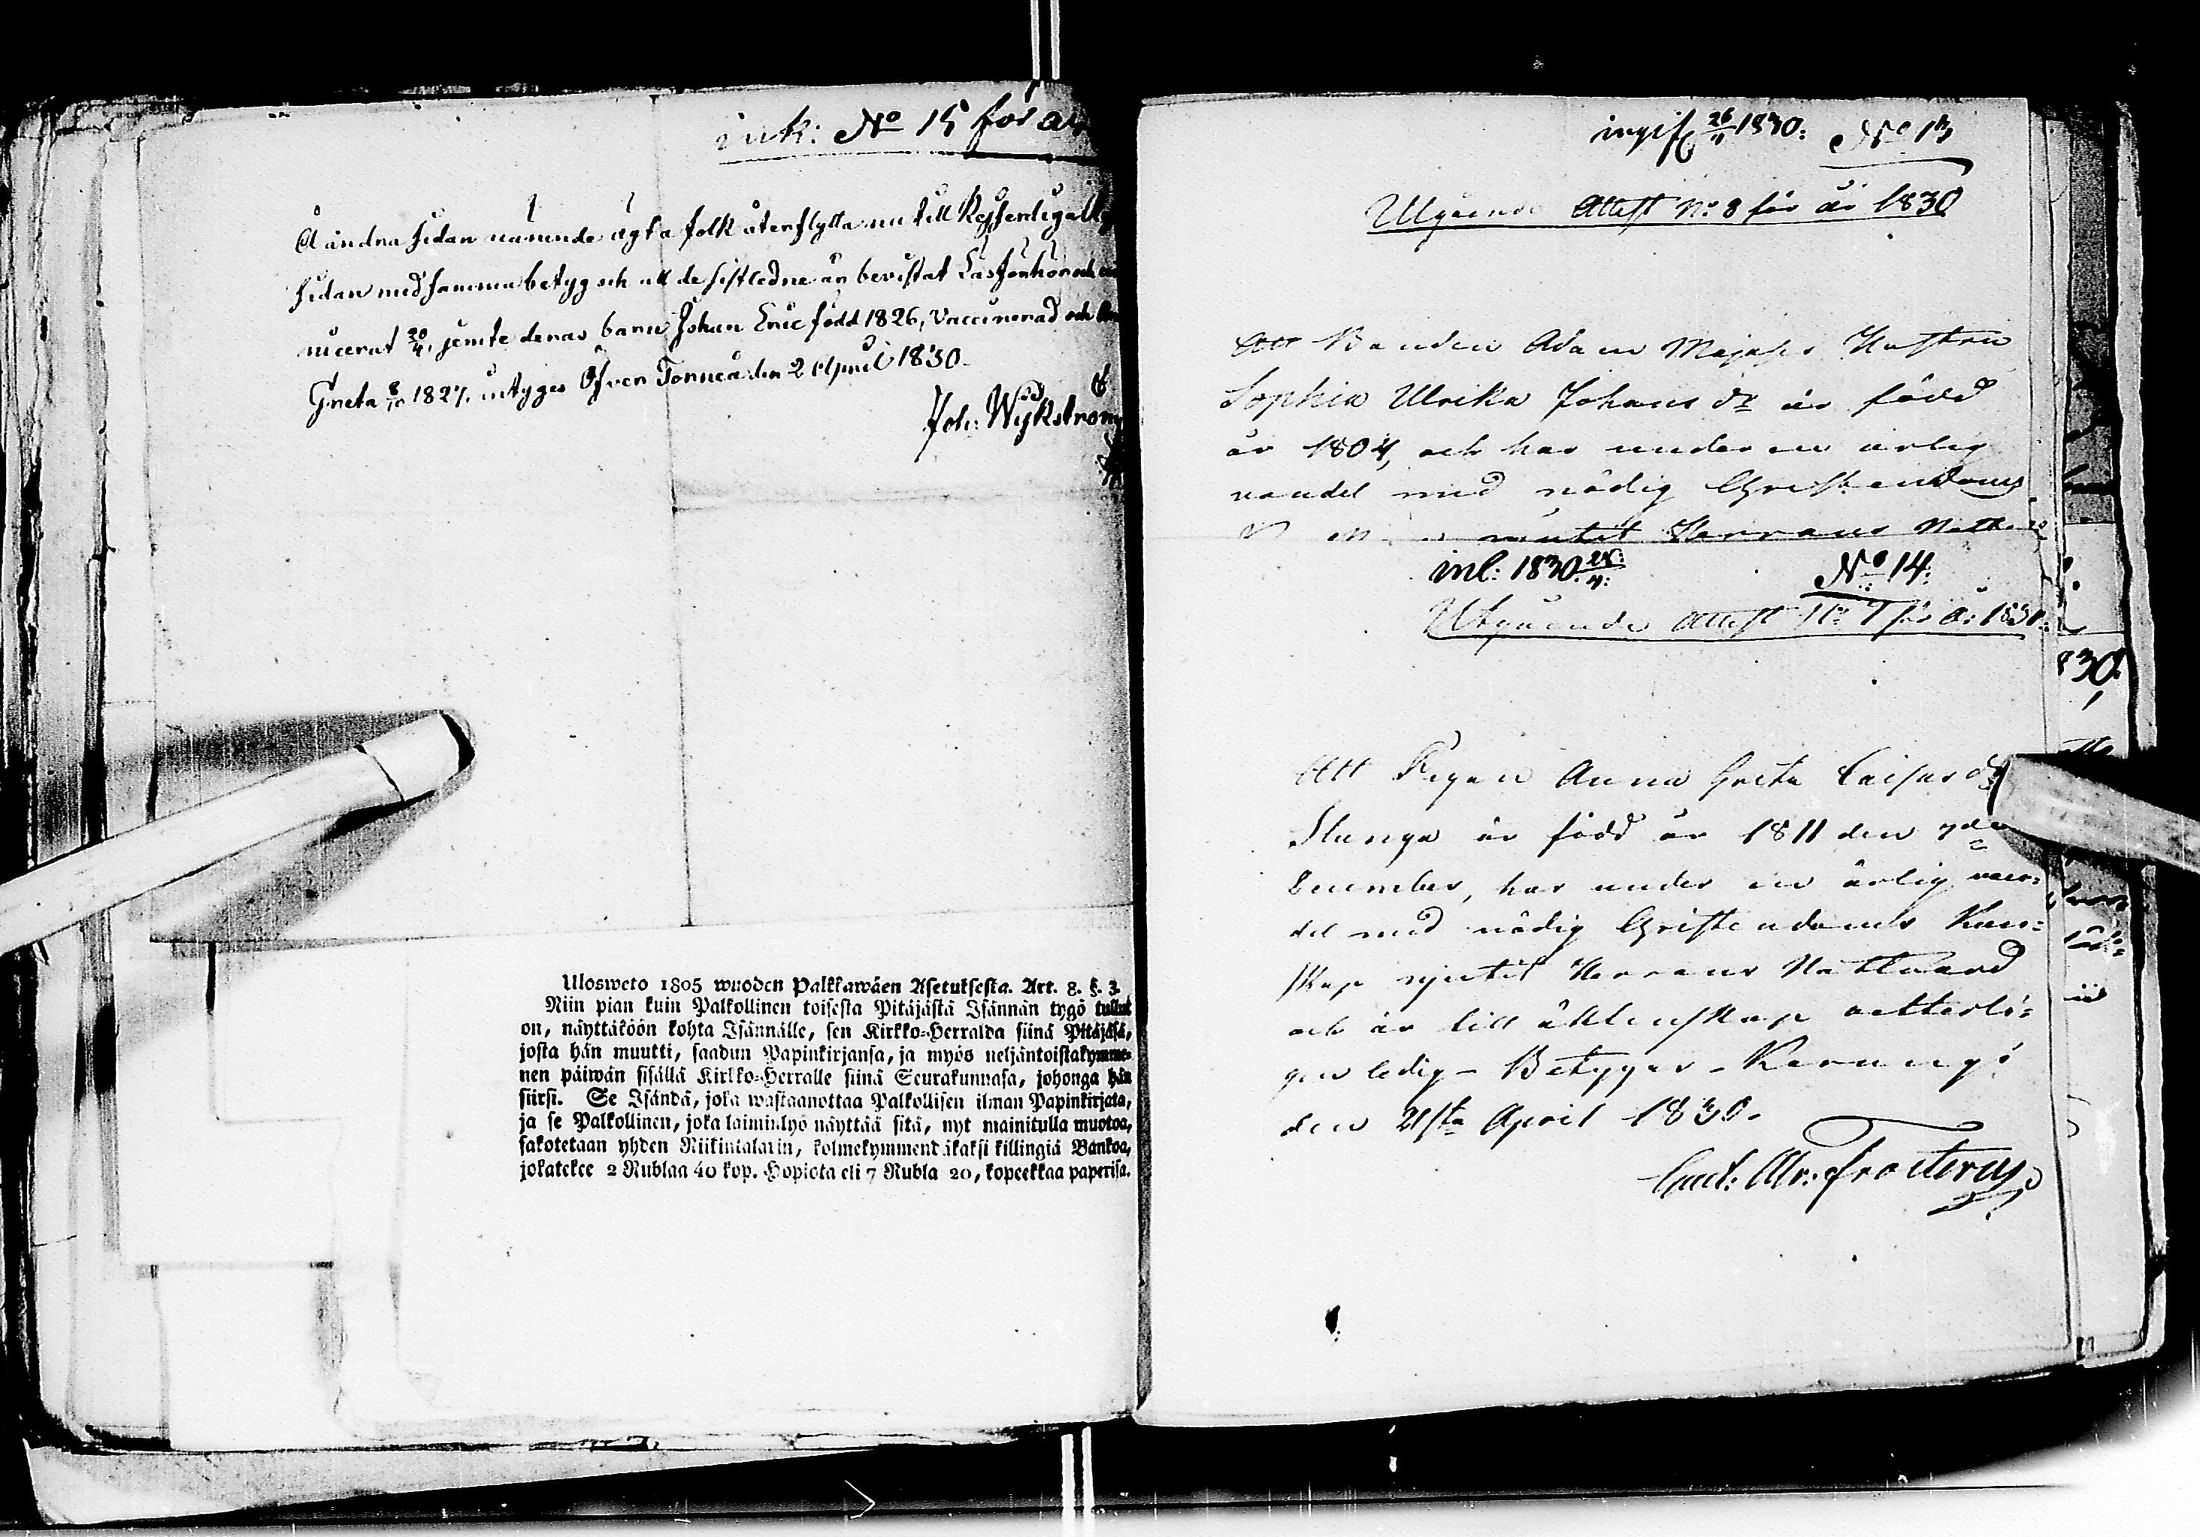 ink: No 15 för
Å andra sidan nämnde ägta folk återflytta nu till
sidan med samma betyg och att de sistledne år bevistat Läsförhör och
nicerat 20/4, jemte deras barn Johan Eric född 1826, Vaccinerad och
Greta 8/10 1827. intygar Öfver Torneå den 2 April 1830.
Joh: Wykström
Ulosweto 1805 wuoden Palkkawäen Asetuksesta. Art. 8. §. 3.
Niin pian kuin Palkollinen toisesta Pitäjästä Isännän tygö tullut
on, näyttäköön kohta Isännälle, sen Kirkko-Herralda siinä Pitäjäsä,
josta hän muutti, saadun Papinkirjansa, ja myös neljäntoistakymme-
nen päiwän sisällä Kirkko-Herralle siinä Seurakunnasa, johonga hän
siirsi. Se Isändä, joka wastaanottaa Palkollisen ilman Papinkirjata,
ja se Palkollinen, joka laiminlyö näyttää sitä, nyt mainitulla muotoa,
sakotetaan yhden Riikintalarin, kolmekymmendäkaksi killingiä Bankoa,
jokatekee 2 Rublaa 40 kop. Hopiota eli 7 Rubla 20, kopeekkaa paperisa.
ingif 26/4 1830: No 13
Utgående Attest No 8 för år 1830
Att Bonden Adam Hustru
Sophia Ulrika Johans dr är född
år 1804, och har under en ärlig
vandel med nödig Christendoms
nutit Herrans
inl: 1830 24/4: No 14:
Utgående Attest No 7 för år 1830.
Att Pigan Anna Greta Caisas dr
Stanga är född år 1811 den 7de
December, har under en ärlig van-
del med nödig Christendoms Kun-
skap njutit Herrans Nattvard
och är till äktenskap
gen ledig - Betygas - Karungi
den 21sta April 1830.
Carl. Ulr: Frosterus